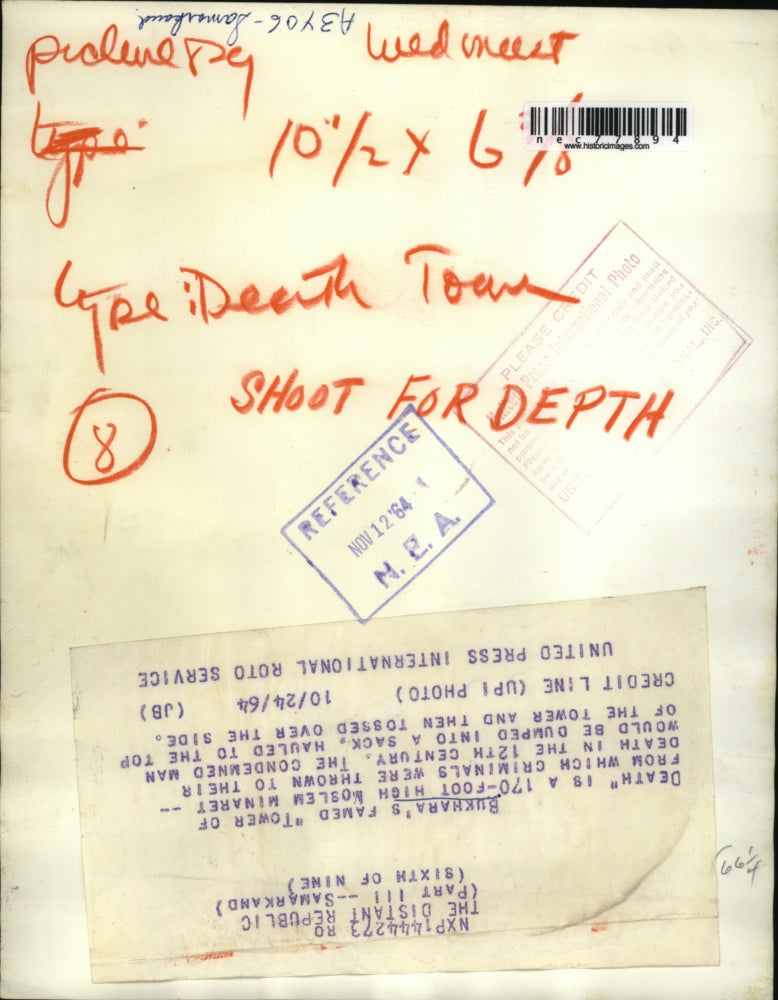 A3Y06-Samarkand
picture Pg Wed meet
type:
10 1/2 x 6
nec77894
www.historicimages.com
type: Death Tower
8
SHOOT FOR DEPTH
PLEASE CREDIT
Press International Photo
REFERENCE
NOV 12 '64
N. E. A.
NXP1444273 RO
THE DISTANT REPUBLIC
(PART III -- SAMARKAND)
(SIXTH OF NINE)
BUKHARA'S FAMED "TOWER OF
DEATH" IS A 170-FOOT HIGH MOSLEM MINARET --
FROM WHICH CRIMINALS WERE THROWN TO THEIR
DEATH IN THE 12TH CENTURY. THE CONDEMNED MAN
WOULD BE DUMPED INTO A SACK, HAULED TO THE TOP
OF THE TOWER AND THEN TOSSED OVER THE SIDE.
CREDIT LINE (UPI PHOTO) 10/24/64 (JB)
UNITED PRESS INTERNATIONAL ROTO SERVICE
66 1/4